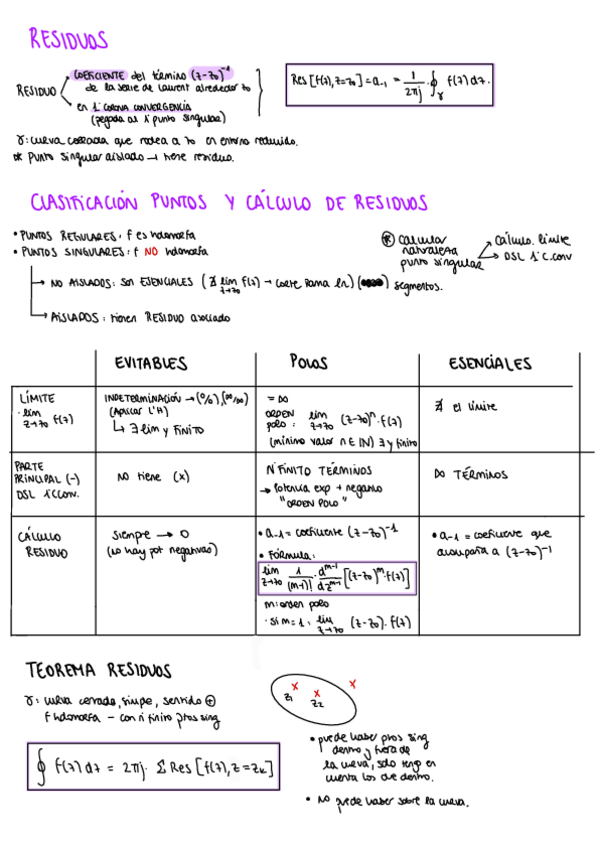 RESIDUOS
RESIDUO
COEFICIENTE del término (z-z₀)⁻¹
de la serie de Laurent alrededor z₀
en 1ª CORONA CONVERGENCIA
(pegada al 1º punto singular)
Res[f(z), z=z₀] = a₋₁ = 1/2πj · ∮γ f(z) dz.
γ: curva cerrada que rodea a z₀ en entorno reducido.
* Punto singular aislado → tiene residuo.
CLASIFICACIÓN PUNTOS Y CÁLCULO DE RESIDUOS
• PUNTOS REGULARES: f es holomorfa
• PUNTOS SINGULARES: f NO holomorfa
→ NO AISLADOS: son ESENCIALES (∄ lim z→z₀ f(z) → corte rama ln) segmentos.
→ AISLADOS: tienen RESIDUO asociado
* calcular naturaleza punto singular
→ Cálculo. límite
→ DSL 1ªC.conv
EVITABLES POLOS ESENCIALES
LÍMITE
· lim z→z₀ f(z)
INDETERMINACIÓN → (0/0), (∞/∞)
(Aplicar L'H)
↳ ∃ lim y FINITO
= ∞
ORDEN POLO: lim z→z₀ (z-z₀)ⁿ · f(z)
(mínimo valor n ∈ ℕ) ∃ y finito
∄ el límite
PARTE
PRINCIPAL (-)
DSL 1ªCConv.
NO tiene (x)
Nº FINITO TÉRMINOS
→ Potencia exp + negativo
"ORDEN POLO"
∞ TÉRMINOS
CÁLCULO
RESIDUO
Siempre → 0
(No hay pot negativas)
• a₋₁ = coeficiente (z-z₀)⁻¹
• FÓRMULA:
lim z→z₀ 1/(m-1)! · dᵐ⁻¹/dzᵐ⁻¹ [(z-z₀)ᵐ · f(z)]
m: orden polo
· Si m=1: lim z→z₀ (z-z₀) · f(z)
• a₋₁ = coeficiente que
acompaña a (z-z₀)⁻¹
TEOREMA RESIDUOS
γ: curva cerrada, simple, sentido ⊕
f holomorfa - con nº finito ptos sing
∮ f(z) dz = 2πj · Σ Res[f(z), z=zₖ]
x x x
z₁ z₂
• puede haber ptos sing
dentro y fuera de
la curva, solo tengo en
cuenta los de dentro.
• NO puede haber sobre la curva.